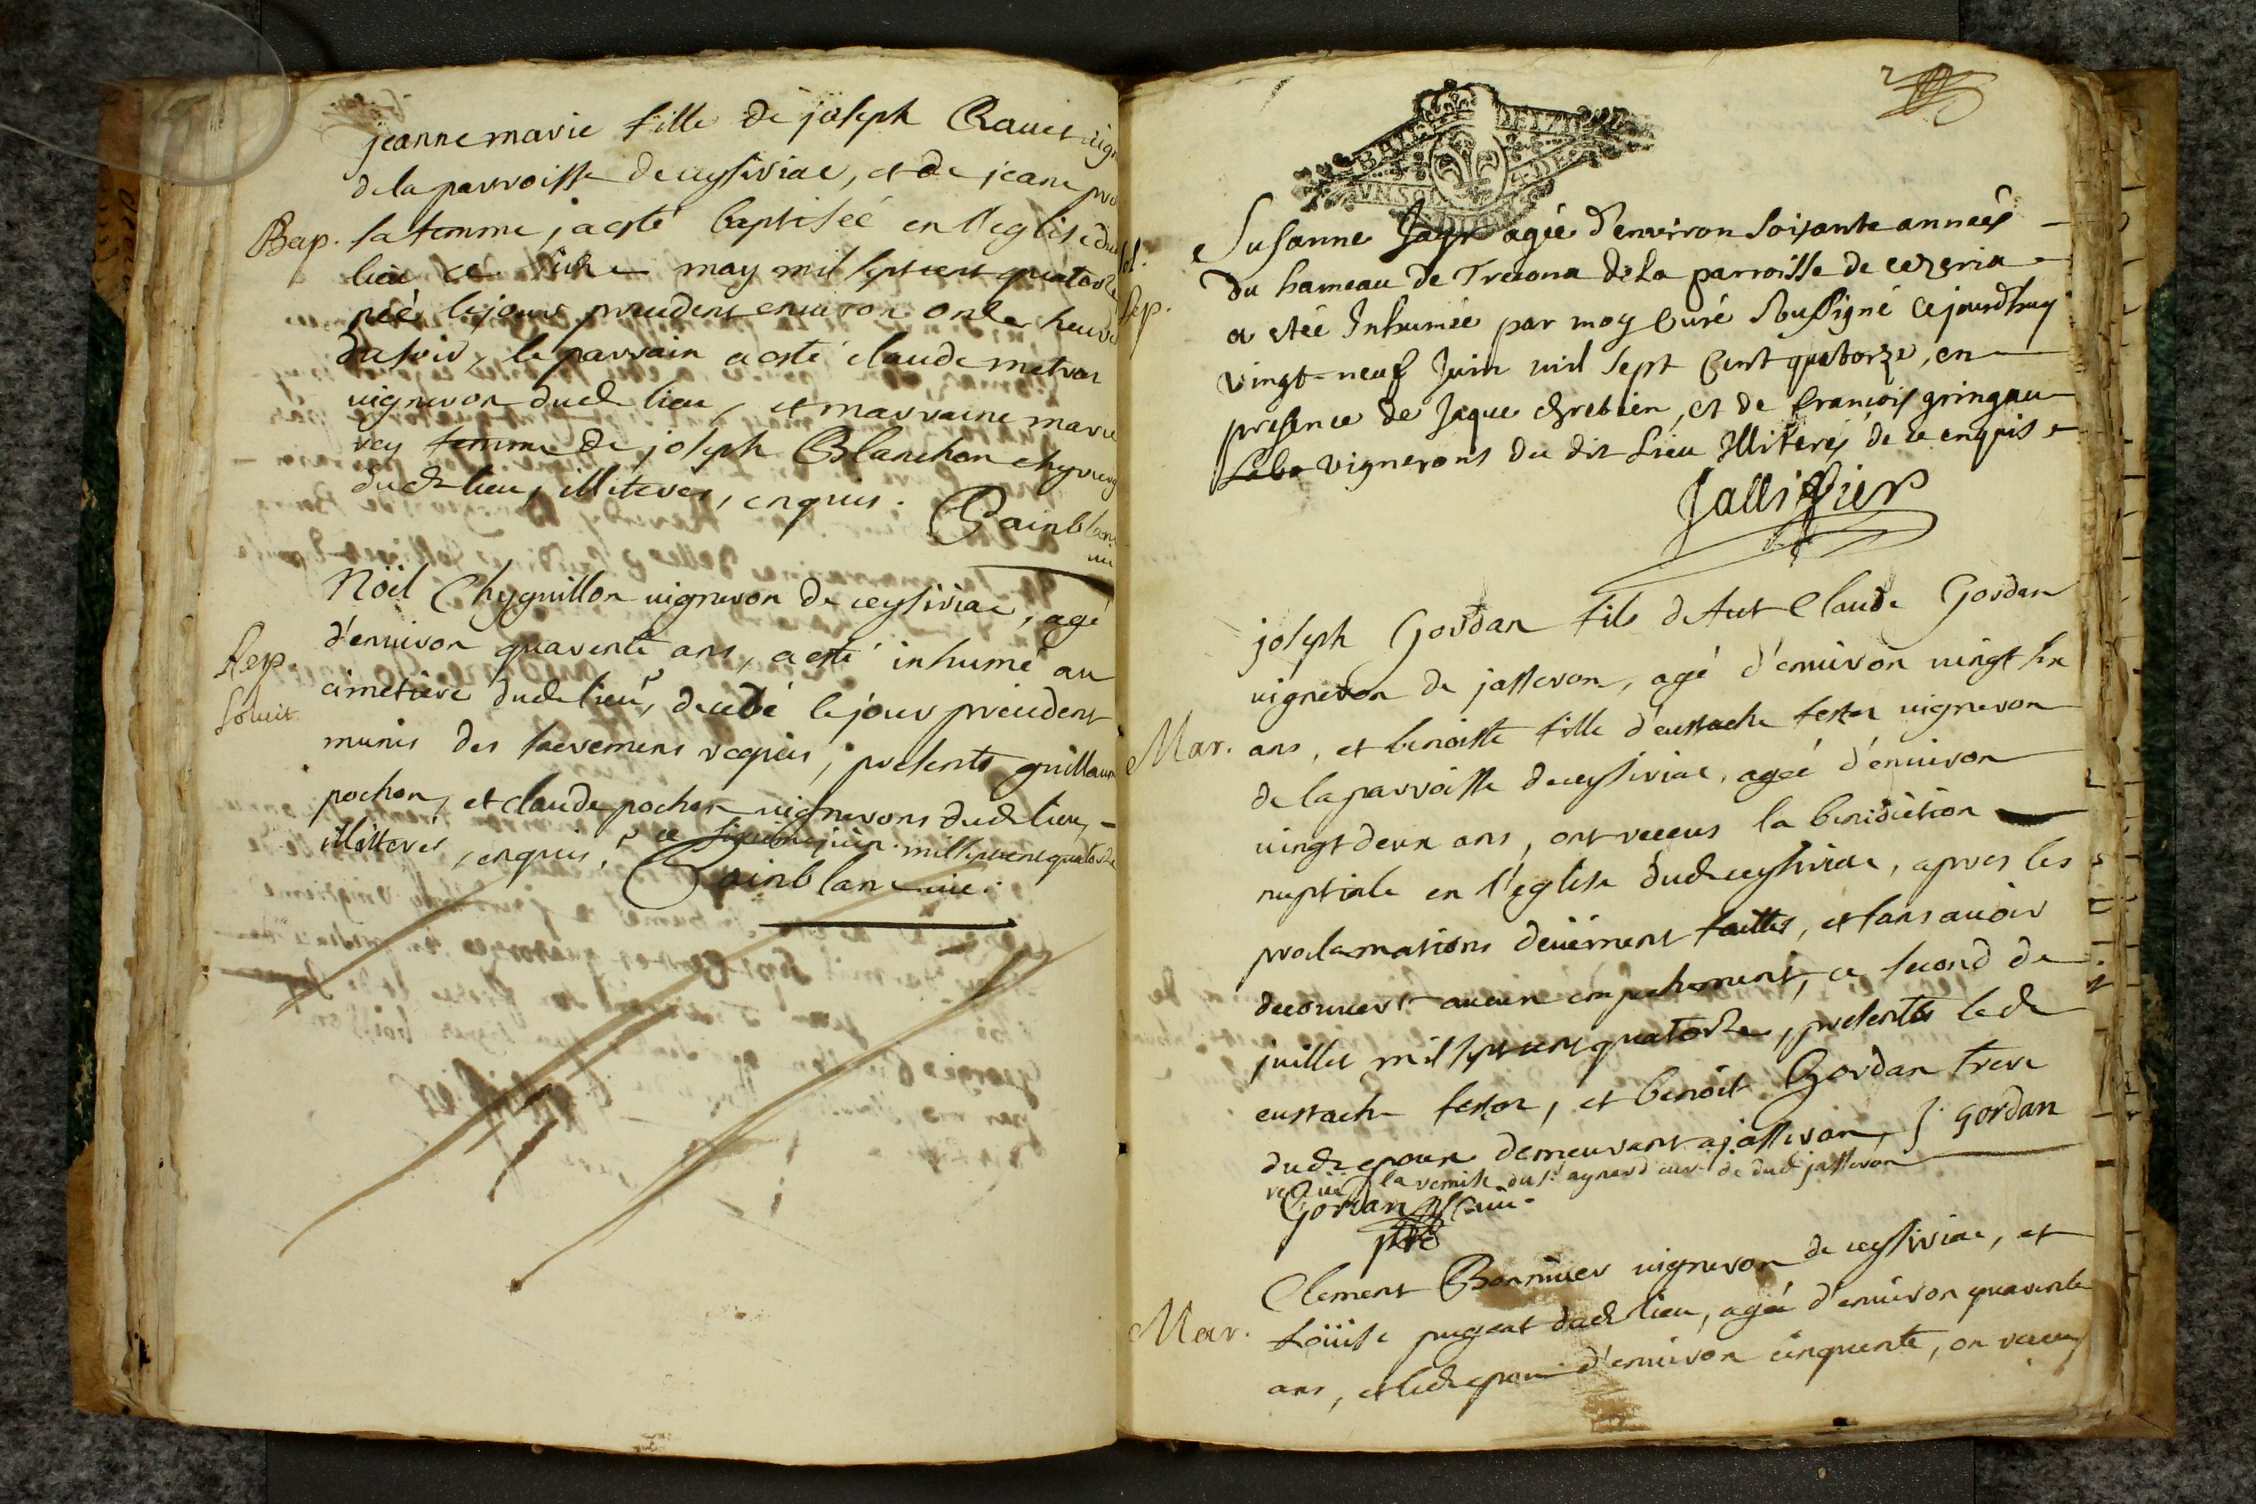 jeanne marie fille de joseph Ravet vign
de la parroisse de ceysiriac, et de jeane
Bap. sa femme, a esté baptiseé en l'eglise dud
lieu ce may mil sept cent quatorze
neé le jour precedent environ onze heure
du soir, le parrain a esté claude
vigneron dud lieu, et marraine marie
rey femme de joseph Blanchon chyrurg
dud lieu, illiteres, enquis.
Painblanc
Noël Chyguillon vigneron de ceysiriac, agé
d'environ quarente ans, a esté inhumé au
Sep.
cimetiere dud lieu, decedé le jour precedent
solvit
munis des sacremens requis, presents guillaum
pochon, et claude pochon vignerons dud lieu,
illitterés, enquis, ce juin mil sept cent quatorze
Painblanc curé.
BRES ET DE
VN SOL
Susanne Jayr agée d'environ soisante années
du hameau de Treconna de La parroisse de cezeria
Sep.
a étée Inhumée par moy Curé Soussigné Cejourdhuy
vingt-neuf Juin mil Sept Cent quatorze, en
presence de Jaque chretien, et de francois gringau
Labo vignerons du dit Lieu Illiterés de ce enquis
Jallifier
joseph Gordan fils de fut Claude Gordan
vigneron de jasseron, agé d'environ vingt six
Mar. ans, et benoiste fille d'eustache feston vigneron
de la parroisse de ceysiriac, ageé d'environ
vingt deux ans, ont receus la benediction
nuptiale en l'eglise dud ceysiriac, apres les
proclamations deüement faittes, et sans avoir
decouvert aucun empechement, ce second de
juillet mil sept cent quatorze, presents led
eustache feston, et benoit Gordan frere
dud epoux demeurant a jasseron, J. gordan
la remise du sr. aynard curé de dud jasseron
Gordan
Clement Bonnivier vigneron de ceysiriac, et
Mar.
Loüise pugeat dud lieu, ageé d'environ quarente
ans, et led epoux d'environ cinquente, on receu